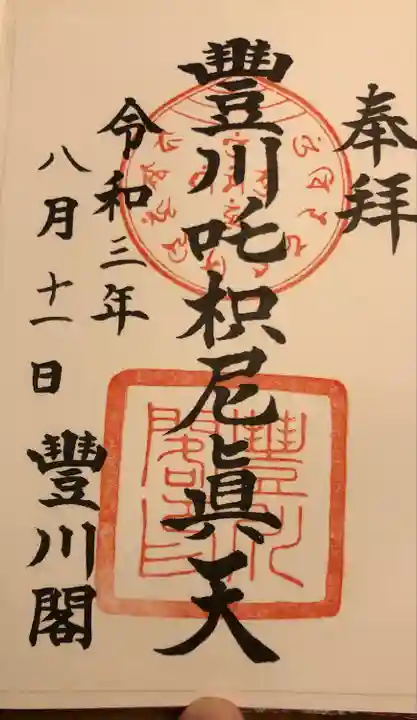 奉拜
豐川吒枳尼眞天
令和三年
八月十一日
豐川閣